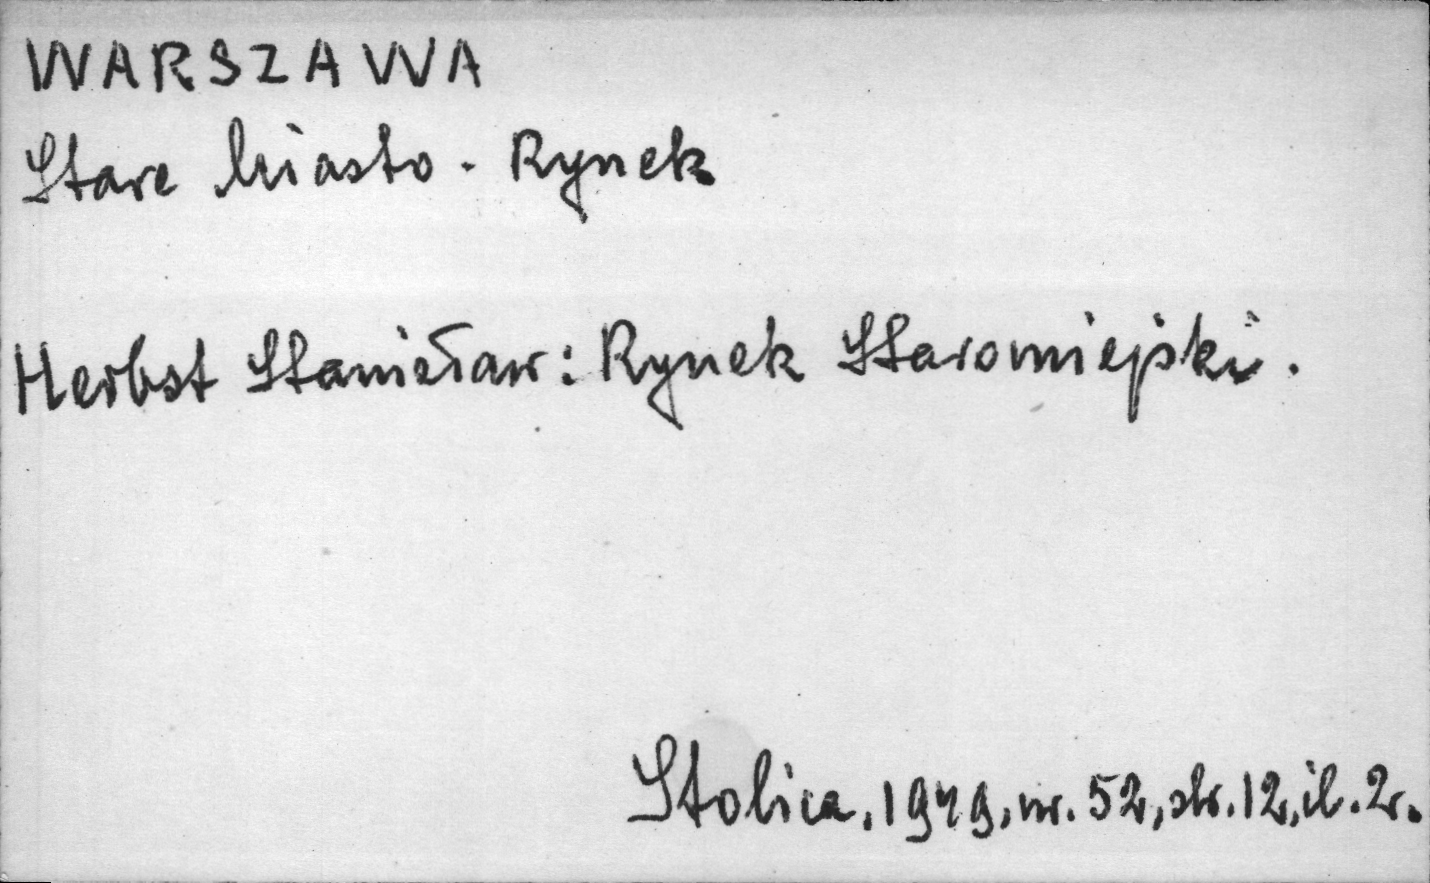 WARSZAWA
Stare Miasto - Rynek
Herbst Stanisław: Rynek Staromiejski.
Stolica, 1949, nr. 52, str. 12, il. 2.